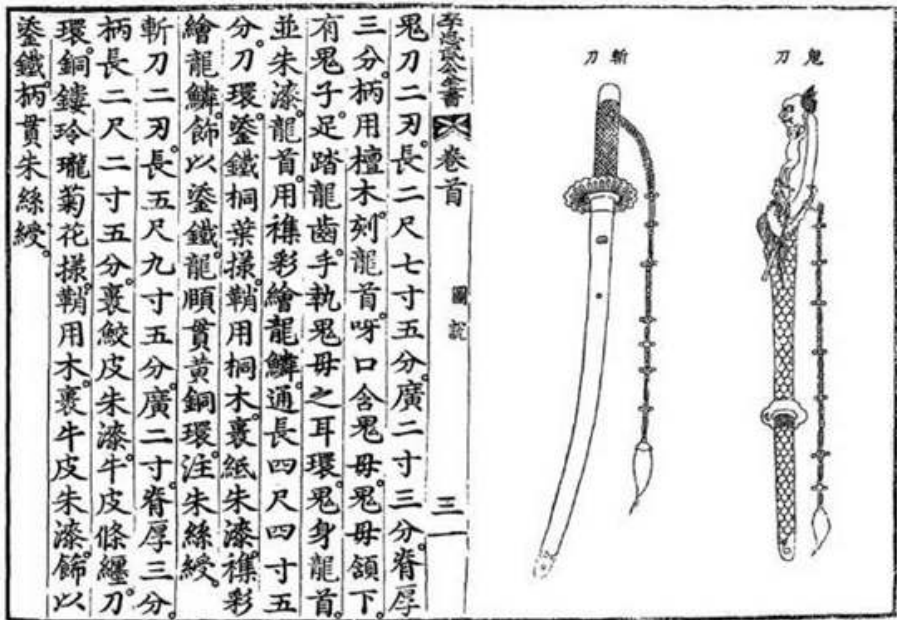 鬼刀
斬刀
李忠武公全書 卷首 圖說 三一
鬼刀二刃。長二尺七寸五分。廣二寸三分。脊厚
三分。柄用檀木。刻龍首。呀口含鬼母。鬼母頷下
有鬼子。足踏龍齒。手執鬼母之耳環。鬼身龍首。
並朱漆。龍首。用襍彩繪龍鱗。通長四尺四寸五
分。刀環。鋈鐵桐葉㨾。鞘用桐木。裹紙朱漆。襍彩
繪龍鱗。飾以鋈鐵龍順。貫黃銅環。注朱絲綬。
斬刀二刃。長五尺九寸五分。廣二寸。脊厚三分。
柄長二尺二寸五分。裹鮫皮朱漆。牛皮條纏。刀
環。銅鏤玲瓏菊花㨾。鞘用木。裹牛皮朱漆。飾以
鋈鐵。柄貫朱絲綬。